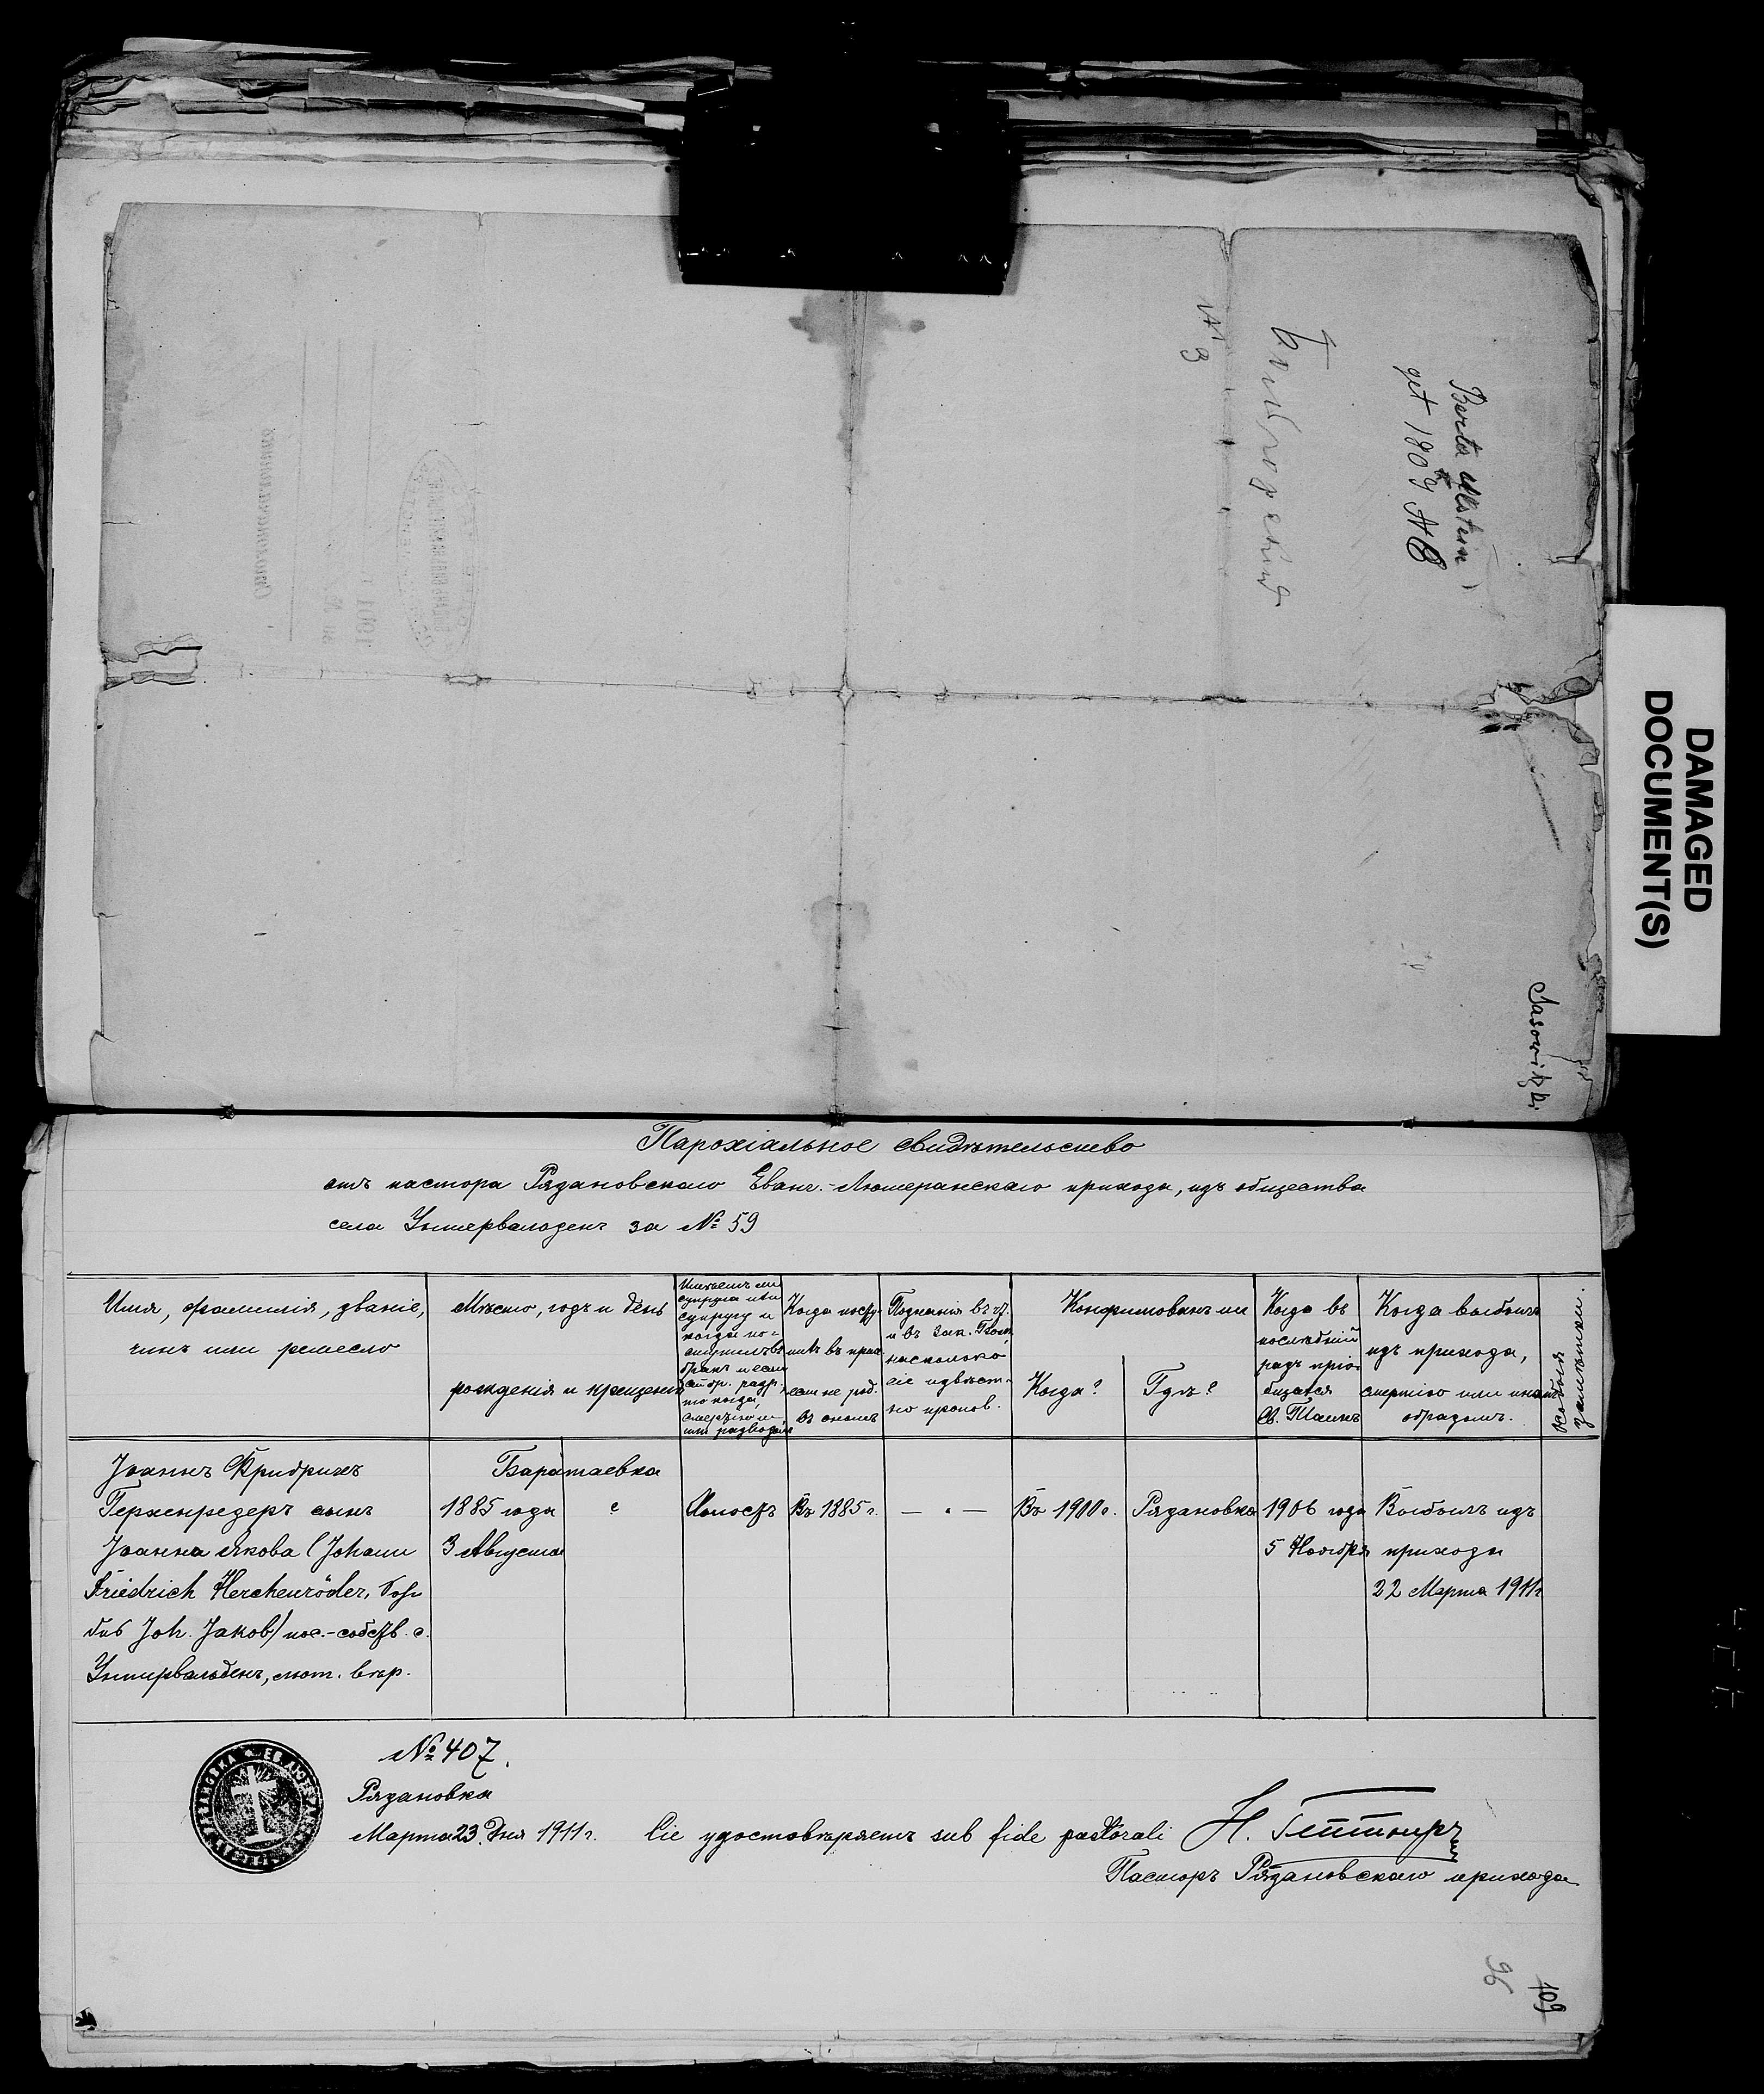 Berta
get 1809
№ 3
DAMAGED
DOCUMENT(S)
Парохіальное свидѣтельство
отъ пастора Рязановскаго Еванг.-Лютеранскаго прихода, изъ общества
села Унтервальденъ за № 59
Имя, фамилія, званіе,
чинъ или ремесло
Мѣсто, годъ и день
рожденія и крещенія
Имѣетъ ли
супруга или
супругу и
когда по-
ступилъ въ
бракъ и если
то когда,
смертью
или разводомъ
Когда посту-
пилъ въ прих.
если не род.
въ ономъ
Познанія въ чт.
и въ Зак. Бож.
насколько
сіе извѣст-
но пропов.
Конфирмованъ ли
Когда?
Гдѣ?
Когда въ
послѣдній
разъ пріо-
бщался
Св. Таинъ
Когда выбылъ
изъ прихода,
смертію или инымъ
образомъ.
Особыя
замѣтки.
Іоаннъ Фридрихъ
Герхенредеръ сынъ
Іоанна Якова (Johann
Friedrich Herchenröder, Sohn
des Joh. Jakob) пос.-собств. с.
Унтервальденъ, лют. вѣр.
Баратаевка
1885 года
3 Августа
Холостъ
Въ 1885 г.
— " —
Въ 1900 г.
Рязановка
1906 года
5 Ноября
Выбылъ изъ
прихода
22 Марта 1911 г.
№ 407.
Рязановка
Марта 23 дня 1911 г.
Сіе удостовѣряетъ sub fide pastorali
Пасторъ Рязановскаго прихода
96
109